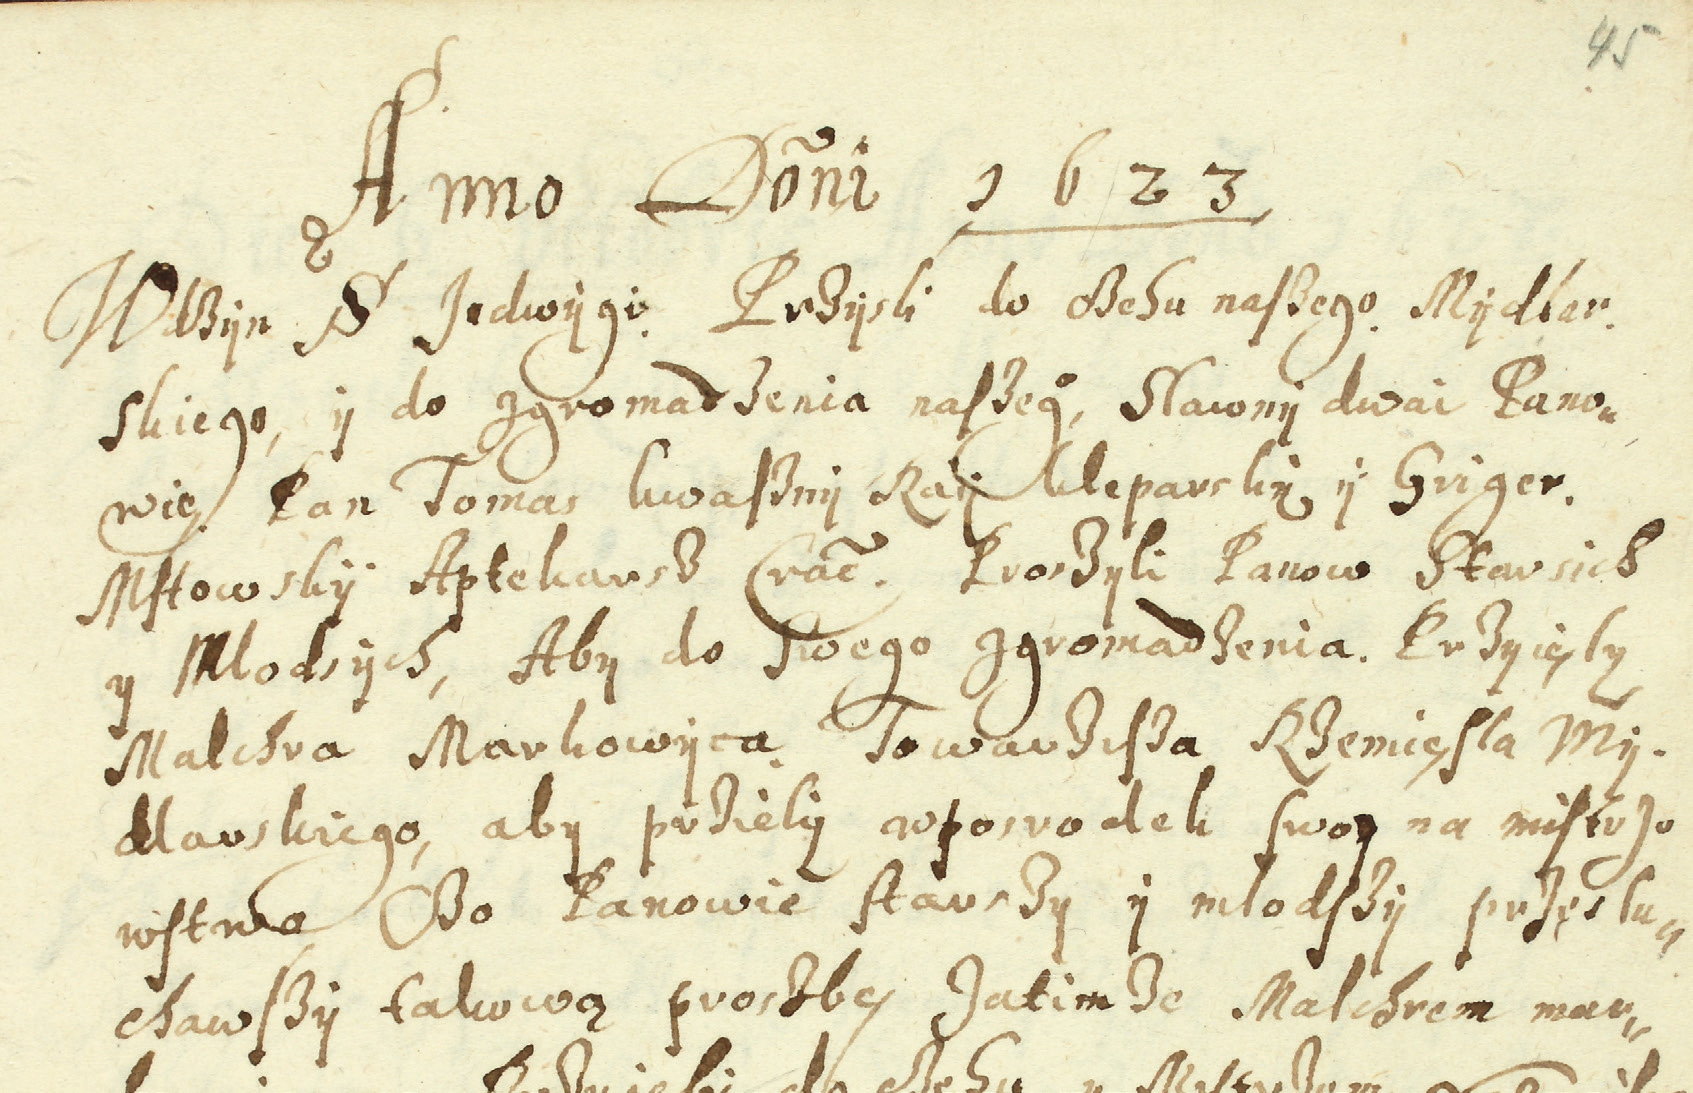 45
Anno Dōni 1623
W dzyn S Jedwygi. Przysli do Cehu naszego. Mydlar.
skiego, y do zgromadzenia naszeg°, Slawny dwai Pano„
wię. Pan Tomas kwaszny Raÿc kleparsky y Griger.
Mstowsky Aptekarsz Crac̄. Proszyli Panow Starsich
y Mlodsych, Aby do swego zgromadzenia. Przyięly
Malchra Markowyca Towarzisza Rzemięsla My-
dlarskiego, aby przieły wposrodek swoy na mistrzo
wstwo Bo Panowie starszy y mlodszy przeslu„
chawszy takową proszbę Zatimze Malchrem mar„